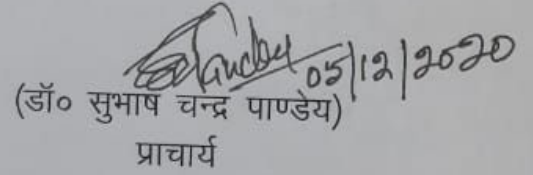 05/12/2020
(डॉ० सुभाष चन्द्र पाण्डेय)
प्राचार्य